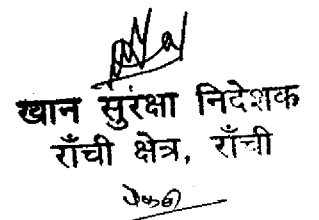 खान सुरंक्षा निदेशक
राँची क्षेत्र, राँची